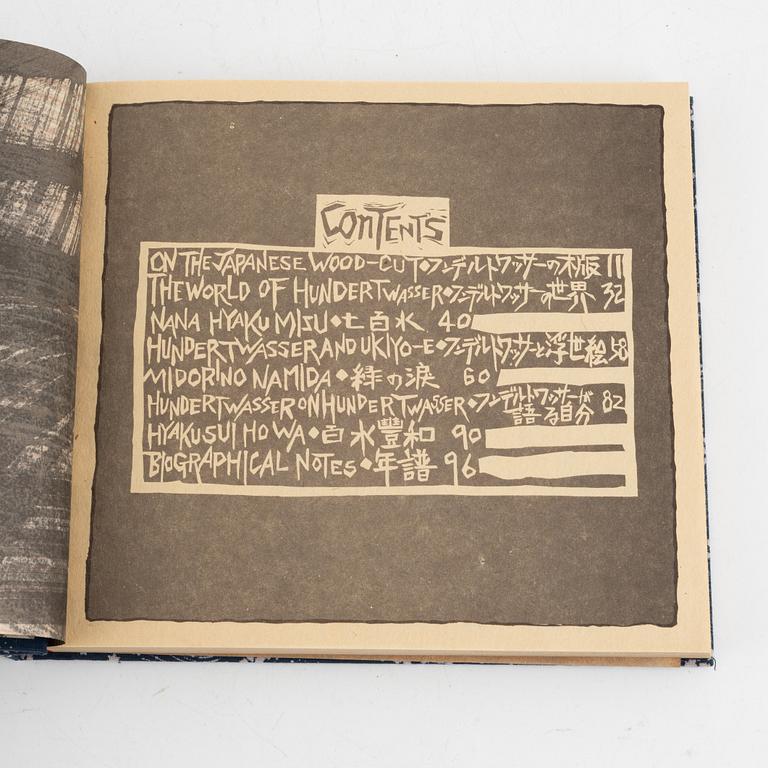 CONTENTS
ON THE JAPANESE WOOD-CUT◆フンデルトワッサーの木版 11
THE WORLD OF HUNDERTWASSER◆フンデルトワッサーの世界 32
NANA HYAKU MIZU◆七百水 40
HUNDERTWASSER AND UKIYO-E◆フンデルトワッサーと浮世絵 58
MIDORI NO NAMIDA◆緑の涙 60
HUNDERTWASSER ON HUNDERTWASSER◆フンデルトワッサーが語る自分 82
HYAKUSUI HOWA◆百水豐和 90
BIOGRAPHICAL NOTES◆年譜 96